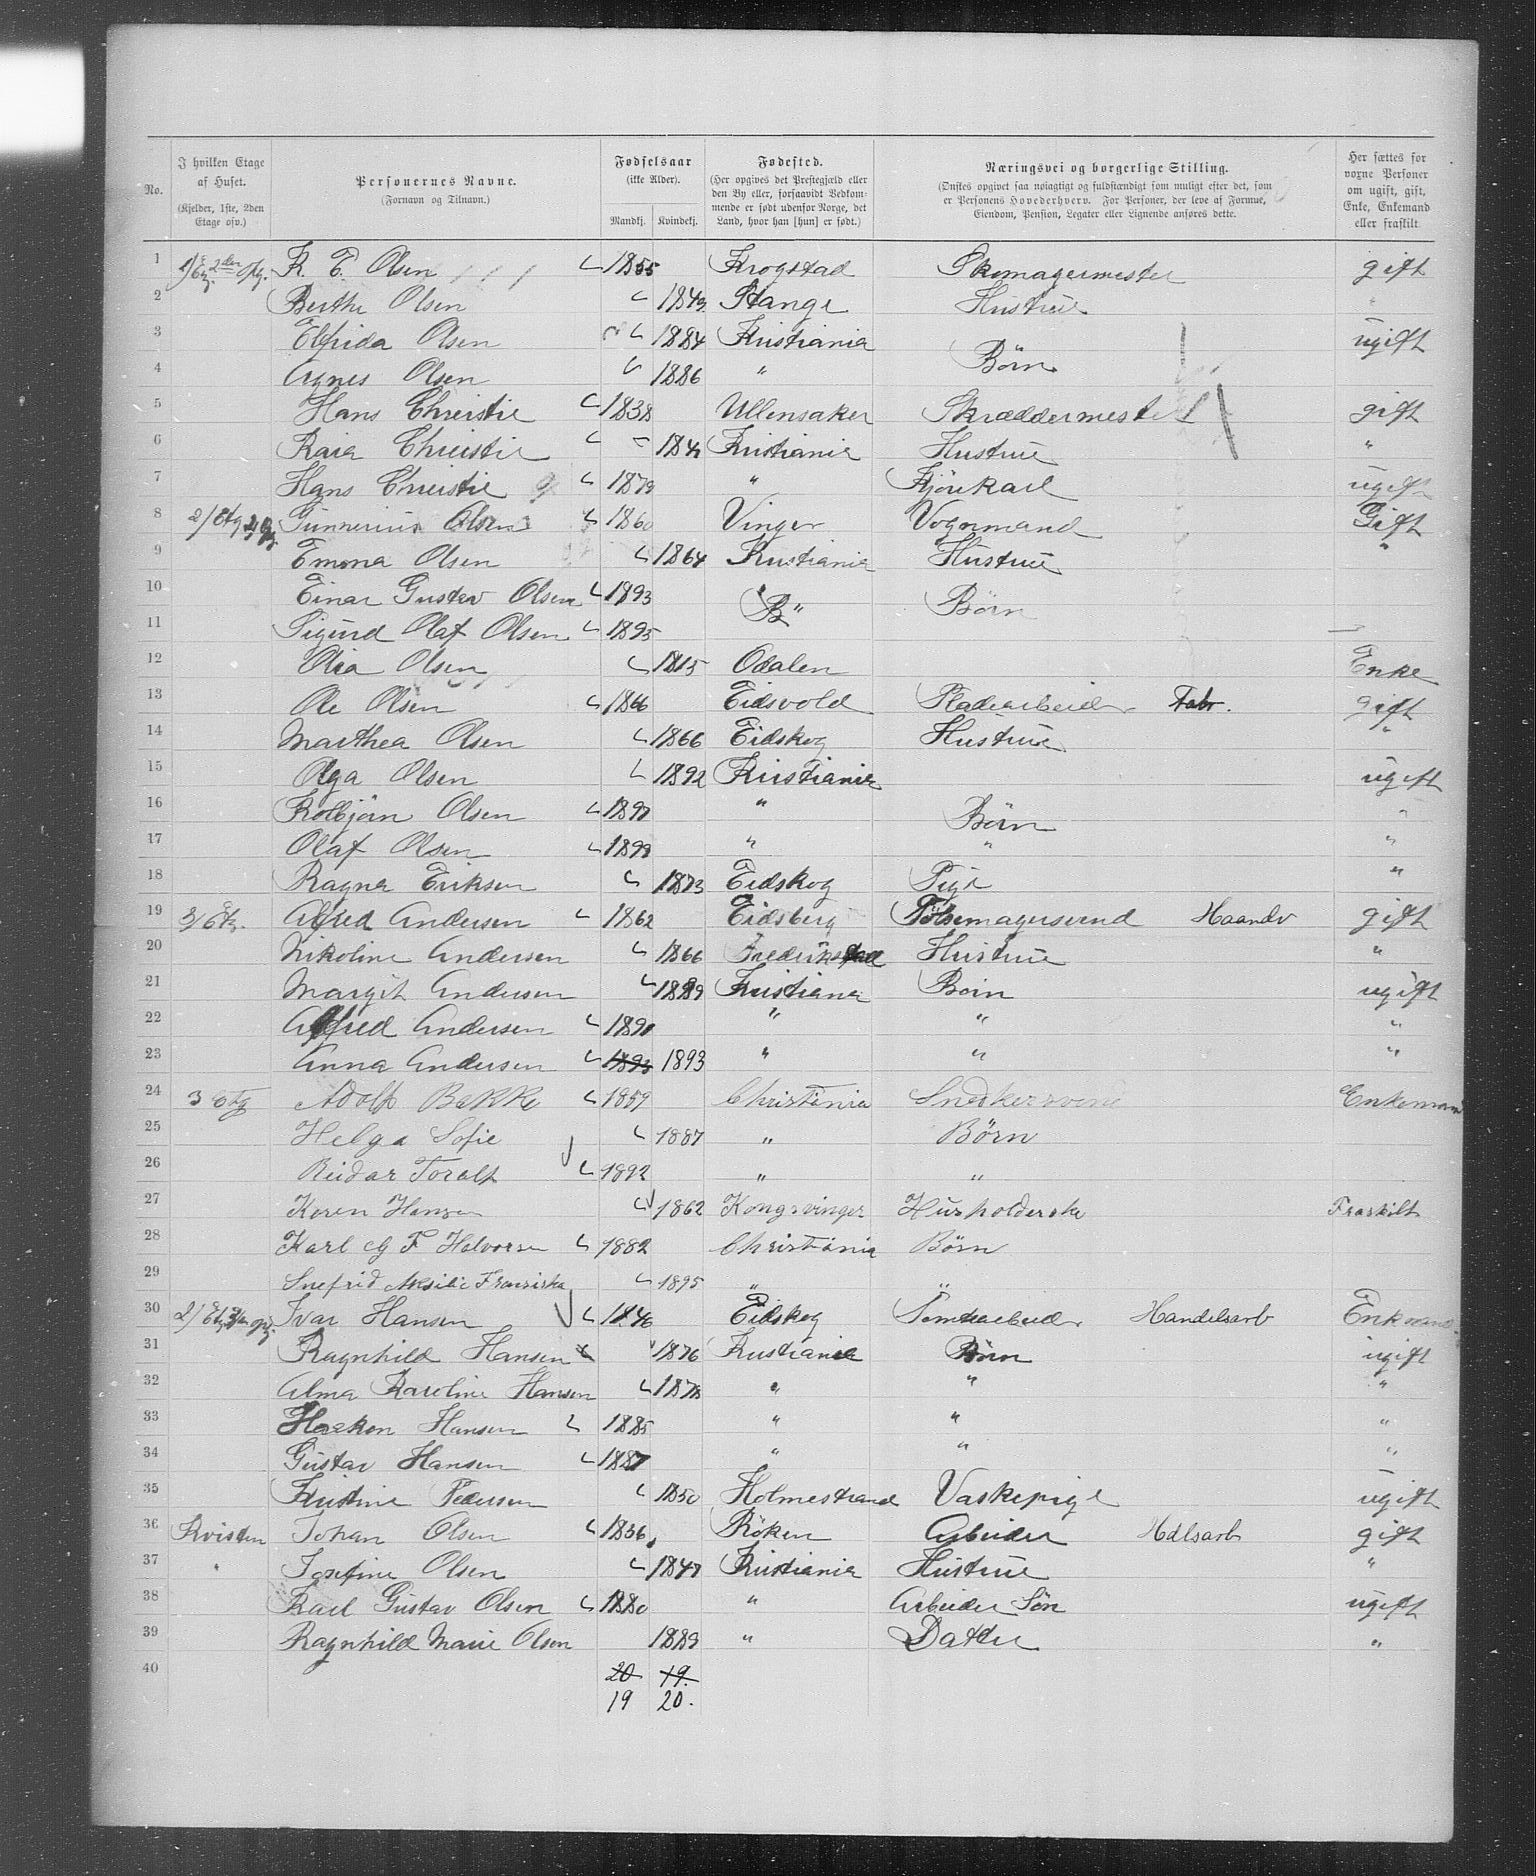 No.
I hvilken Etage af Huset. (Kjelder, 1ste, 2den Etage osv.)
Personernes Navne. (Fornavn og Tilnavn.)
Fødselsaar (ikke Alder). Mandkj. Kvindekj.
Fødested. (Her opgives det Prestegjæld eller den By eller, forsaavidt Vedkommende er født udenfor Norge, det Land, hvor han [hun] er født.)
Næringsvei og borgerlige Stilling. (Ønskes opgivet saa nøiagtigt og fuldstændigt som muligt efter det, som er Personens Hovederhverv. For Personer, der leve af Formue, Eiendom, Pension, Legater eller Lignende anføres dette.
Her sættes for voxne Personer om ugift, gift, Enke, Enkemand eller fraskilt
1 K. E. Olsen 1855 Krogstad Skomagermester gift
2 Berthe Olsen 1849 Stange Hustrue "
3 Elfrida Olsen 1884 Kristiania ugift
4 Agnes Olsen 1886 " Børn
5 Hans Christie 1838 Ullensaker Skræddermester gift
6 Christie Kristiania Hustrue "
7 Hans Christie 1879 " Kjörekarl ugift
8 2/Etg Gunnerius Olsen 1860 Vinger Vognmand Gift
9 Emma Olsen 1864 Kristiania Hustrue "
10 Einar Gustav Olsen 1893 " Börn
11 Sigurd Olaf Olsen 1895
12 Olia Olsen 1815 Odalen Enke
13 Ole Olsen 1866 Eidsvold Pladearbeider Fabr. gift
14 Marthea Olsen 1866 Eidskog Hustrue "
15 Olga Olsen 1892 Kristiania ugift
16 Kolbjörn Olsen " Börn "
17 Olaf Olsen " " "
18 Ragna Eriksen 1873 Eidskog Pige "
19 3/Etg. Alfred Andersen 1862 Eidsberg Pölsemagersvend Haandv gift
20 Nikoline Andersen 1866 Frederikstad Hustrue "
21 Margit Andersen 1889 Kristiania Børn ugift
22 Alfred Andersen " " "
23 Anna Andersen 1893 1893 " " "
24 3 Etg Adolf Bakke 1859 Christiania Snedkersvend Enkemand
25 Helga Sofie 1887 " Børn
26 Reidar Toralf 1892 " "
27 Karen Hansen 1862 Kongsvinger Husholderske Fraskilt
28 Karl F Halvorsen 1882 Christiania Børn
29 Snefrid Franziska 1895 "
30 2/Etg Ivar Hansen Eidskog Tomtearbeider Handelsarb Enkemand
31 Ragnhild Hansen 1876 Kristiania Börn ugift
32 Alma Karoline Hansen 1878 " " "
33 Haakon Hansen 1885 " " "
34 Gustav Hansen 1887 " " "
35 Kristine Pedersen 1850 Holmestrand Vaskepige ugift
36 Kvisten Johan Olsen 1856 Röken Arbeider Hdlsarb gift
37 " Josefine Olsen Kristiania Hustrue "
38 Karl Gustav Olsen 1880 " Arbeider Sön ugift
39 Ragnhild Marie Olsen 1889 " Datter "
40 20 19.
19 20.